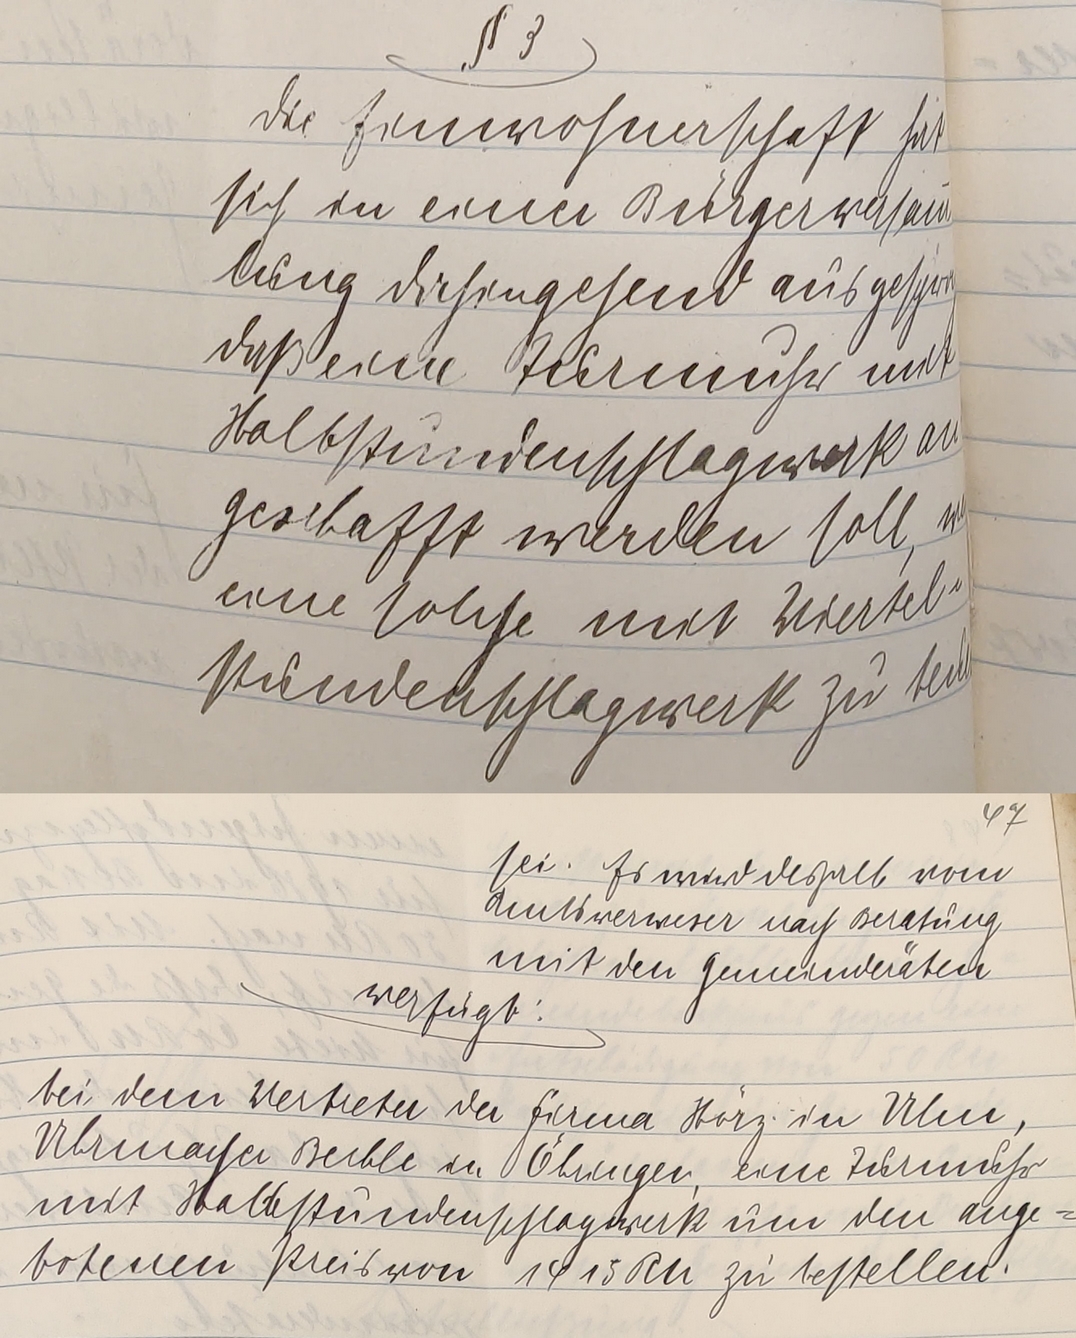 § 3
Die Einwohnerschaft hat
sich in einer Bürgerversam
lung dahingehend ausgespro
daß eine Turmuhr mit
Halbstundenschlagwerk an
geschafft werden soll, 
eine solche mit Viertel-
stundenschlagwerk zu
47
sei. Es wird deshalb vom
Amtsverweser nach Beratung
mit den Gemeinderäten
verfügt:
bei dem Vertreter der Firma Hörz in Ulm,
Uhrmacher in Öhringen, eine Turmuhr
mit Halbstundenschlagwerk um den ange=
botenen Preis von 1415 RM zu bestellen.